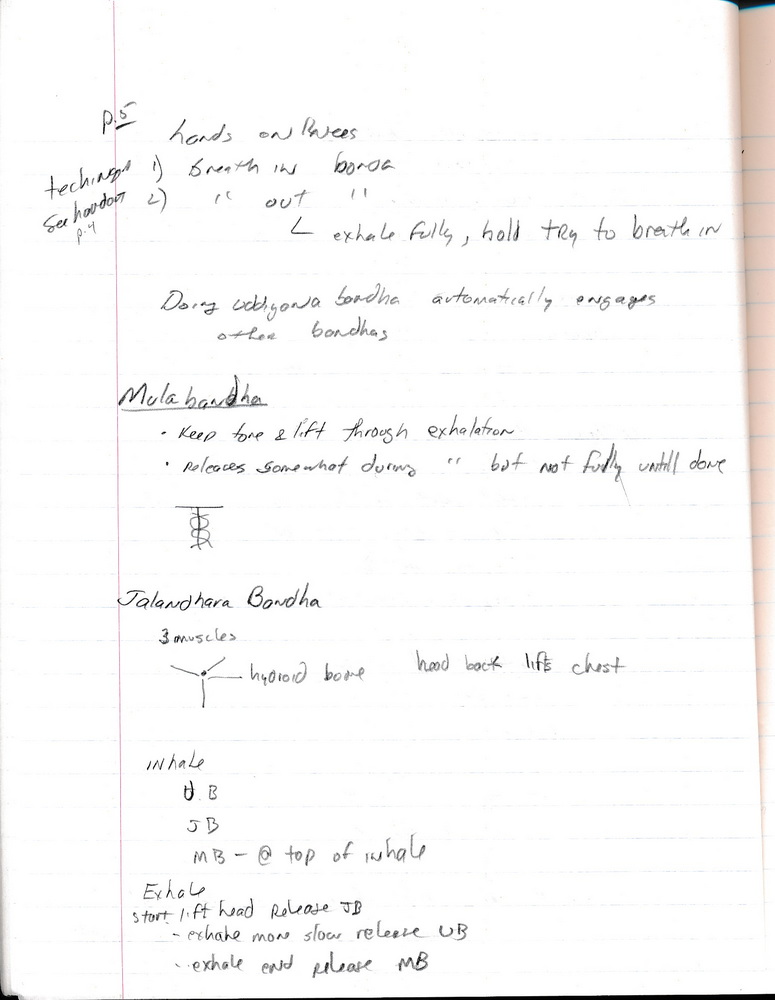 p.5
hands on knees
techinqes 1) Breath in bonda
see handout 2) " out "
p.4
exhale fully, hold try to breath in
Doing uddiyona bondha automatically engages
other bondhas
Mula bandha
• Keep tone & lift through exhalation
• Releases somewhat during " but not fully untill done
Jalandhara Bondha
3 muscles
hydroid bone head back lifts chest
inhale
UB
JB
MB - @ top of inhale
Exhale
start lift head Release JB
- exhahe more slow release UB
- exhale end release MB